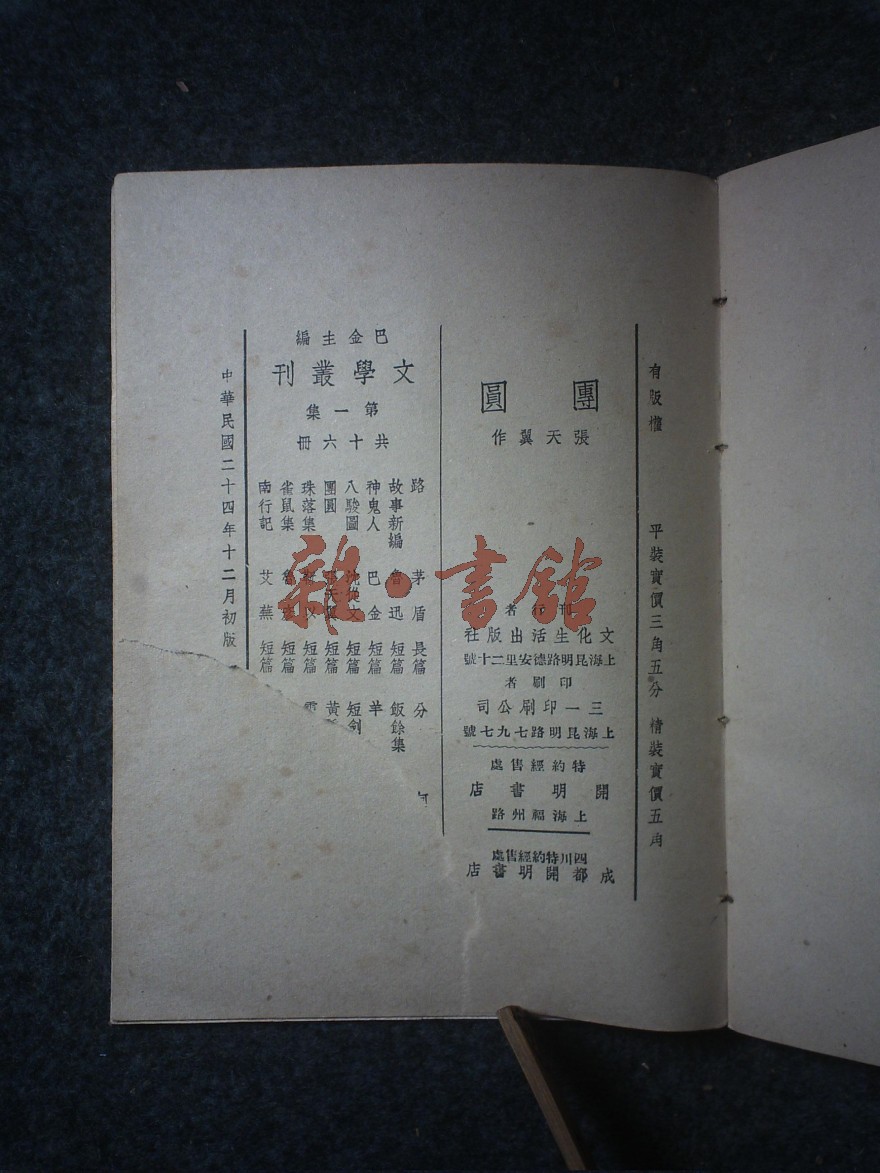 有版權 平裝實價三角五分 精裝實價五角
團圓
張天翼作
刊行者
文化生活出版社
上海昆明路德安里二十號
印刷者
三一印刷公司
上海昆明路七九七號
特約經售處
開明書店
上海福州路
四川特約經售處
成都開明書店
巴金主編
文學叢刊
第一集
共十六冊
路 茅盾 長篇 分
故事新編 魯迅 短篇 飯餘集
神鬼人 巴金 短篇 羊
八駿圖 沈從文 短篇 短劍
團圓 張天翼 短篇 黃
珠落集 靳以 短篇
雀鼠集 魯彥 短篇
南行記 艾蕪 短篇
中華民國二十四年十二月初版
雜·書館